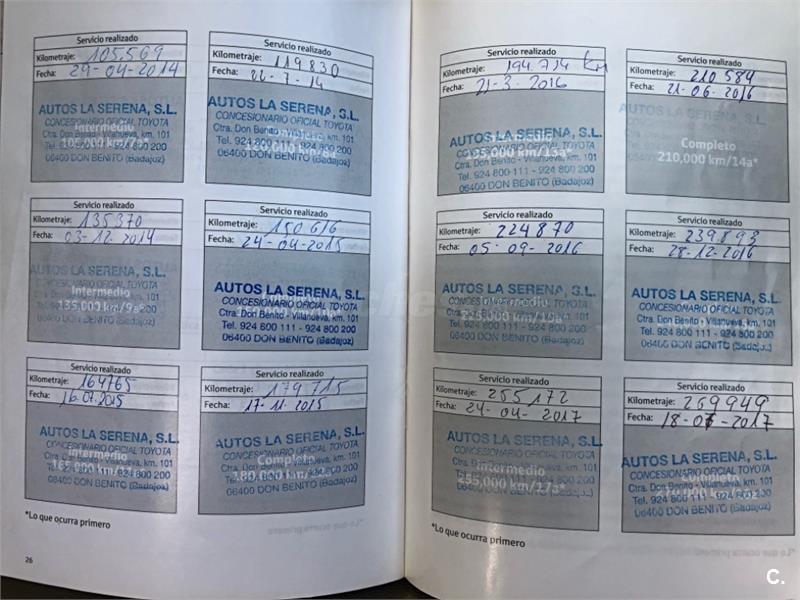 Servicio realizado
Kilometraje: 105.569
Fecha: 29-04-2014
AUTOS LA SERENA, S.L.
CONCESIONARIO OFICIAL TOYOTA
Ctra. Don Benito - Villanueva, km. 101
Tel. 924 800 111 - 924 800 200
06400 DON BENITO (Badajoz)
Intermedio
Servicio realizado
Kilometraje: 119830
Fecha: 26-7-14
AUTOS LA SERENA, S.L.
CONCESIONARIO OFICIAL TOYOTA
Ctra. Don Benito - Villanueva, km. 101
Tel. 924 800 111 - 924 800 200
06400 DON BENITO (Badajoz)
Servicio realizado
Kilometraje: 135370
Fecha: 03-12-2014
AUTOS LA SERENA, S.L.
Intermedio
135,000 km/9a*
Servicio realizado
Kilometraje: 150616
Fecha: 24-04-2015
AUTOS LA SERENA, S.L.
CONCESIONARIO OFICIAL TOYOTA
Ctra. Don Benito - Villanueva, km. 101
Tel. 924 600 111 - 924 800 200
06400 DON BENITO (Badajoz)
Servicio realizado
Kilometraje: 164765
Fecha: 16.07.2015
AUTOS LA SERENA, S.L.
CONCESIONARIO OFICIAL TOYOTA
Intermedio
165,000 km/11a*
06400 DON BENITO (Badajoz)
Servicio realizado
Kilometraje: 179715
Fecha: 17-11-2015
AUTOS LA SERENA, S.L.
CONCESIONARIO OFICIAL TOYOTA
Completo
180,000 km/12a*
06400 DON BENITO (Badajoz)
*Lo que ocurra primero
26
Servicio realizado
Kilometraje: 194.714 km
Fecha: 21-3-2016
AUTOS LA SERENA, S.L.
CONCESIONARIO OFICIAL TOYOTA
Ctra. Don Benito - Villanueva, km. 101
Tel. 924 800 111 - 924 800 200
06400 DON BENITO (Badajoz)
Servicio realizado
Kilometraje: 210584
Fecha: 21-06-2016
Completo
210,000 km/14a*
Servicio realizado
Kilometraje: 224870
Fecha: 05-09-2016
AUTOS LA SERENA, S.L.
CONCESIONARIO OFICIAL TOYOTA
Intermedio
225,000 km/15a*
06400 DON BENITO (Badajoz)
Servicio realizado
Kilometraje: 239.893
Fecha: 28-12-2016
AUTOS LA SERENA, S.L.
CONCESIONARIO OFICIAL TOYOTA
Ctra. Don Benito - Villanueva, km. 101
Tel. 924 800 111 - 924 800 200
06400 DON BENITO (Badajoz)
Servicio realizado
Kilometraje: 255172
Fecha: 24-04-2017
AUTOS LA SERENA, S.L.
CONCESIONARIO OFICIAL TOYOTA
Ctra. Don Benito - Villanueva, km. 101
Intermedio
255,000 km/17a*
06400 DON BENITO (Badajoz)
Servicio realizado
Kilometraje: 269949
Fecha: 18-07-2017
AUTOS LA SERENA, S.L.
CONCESIONARIO OFICIAL TOYOTA
Ctra. Don Benito - Villanueva, km. 101
Completo
06400 DON BENITO (Badajoz)
*Lo que ocurra primero
C.